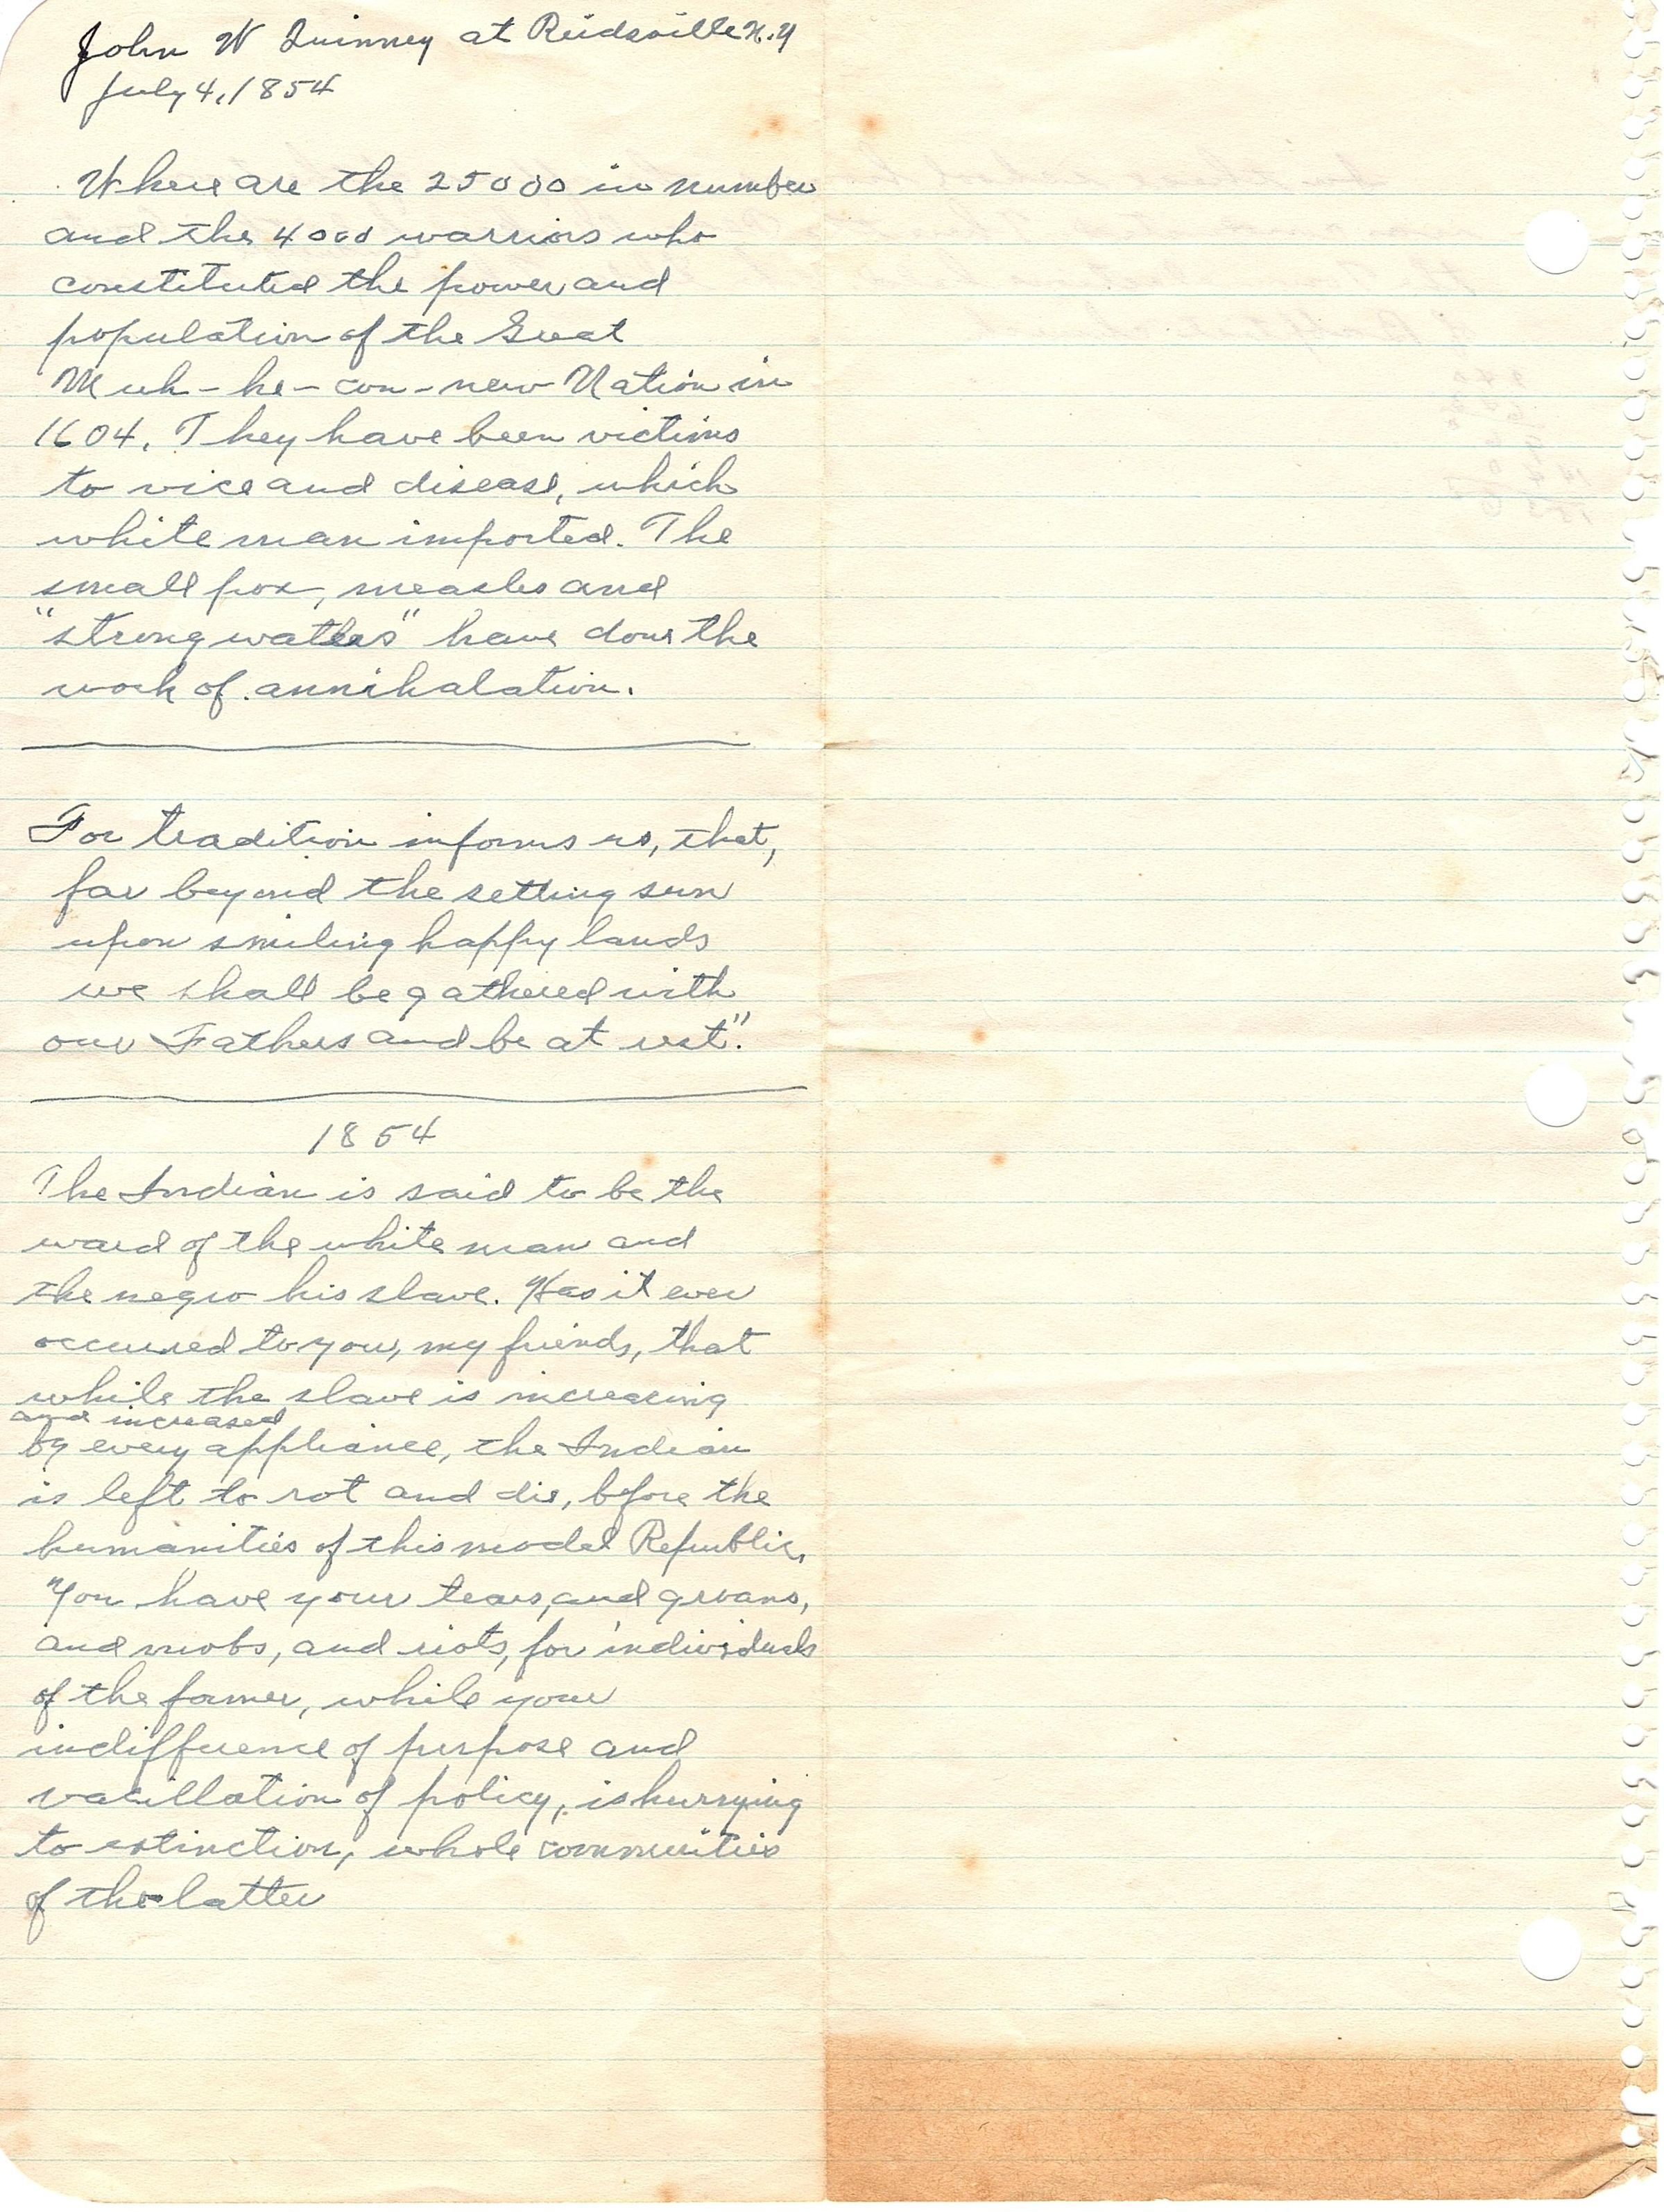 John W Quinney at Reidsville N.Y
July 4, 1854
Where are the 25000 in number
and the 4000 warriors who
constituted the power and
population of the Great
Muh-he-con-new Nation in
1604. They have been victims
to vice and disease, which
white man imported. The
small pox, measles and
"strong waters" have done the
work of annihalation.
For tradition informs us, that,
far beyond the setting sun
upon smiling happy lands
we shall be gathered with
our Fathers and be at rest".
1854
The Indian is said to be the
ward of the white man and
the negro his slave. Has it ever
occurred to you, my friends, that
while the slave is increasing
and increased
by every appliance, the Indian
is left to rot and die, before the
humanities of this model Republic,
"You have your tears, and groans,
and mobs, and riots, for individuals
of the former, while your
indifference of purpose and
vacillation of policy, is hurrying
to extinction, whole communities
of the latter